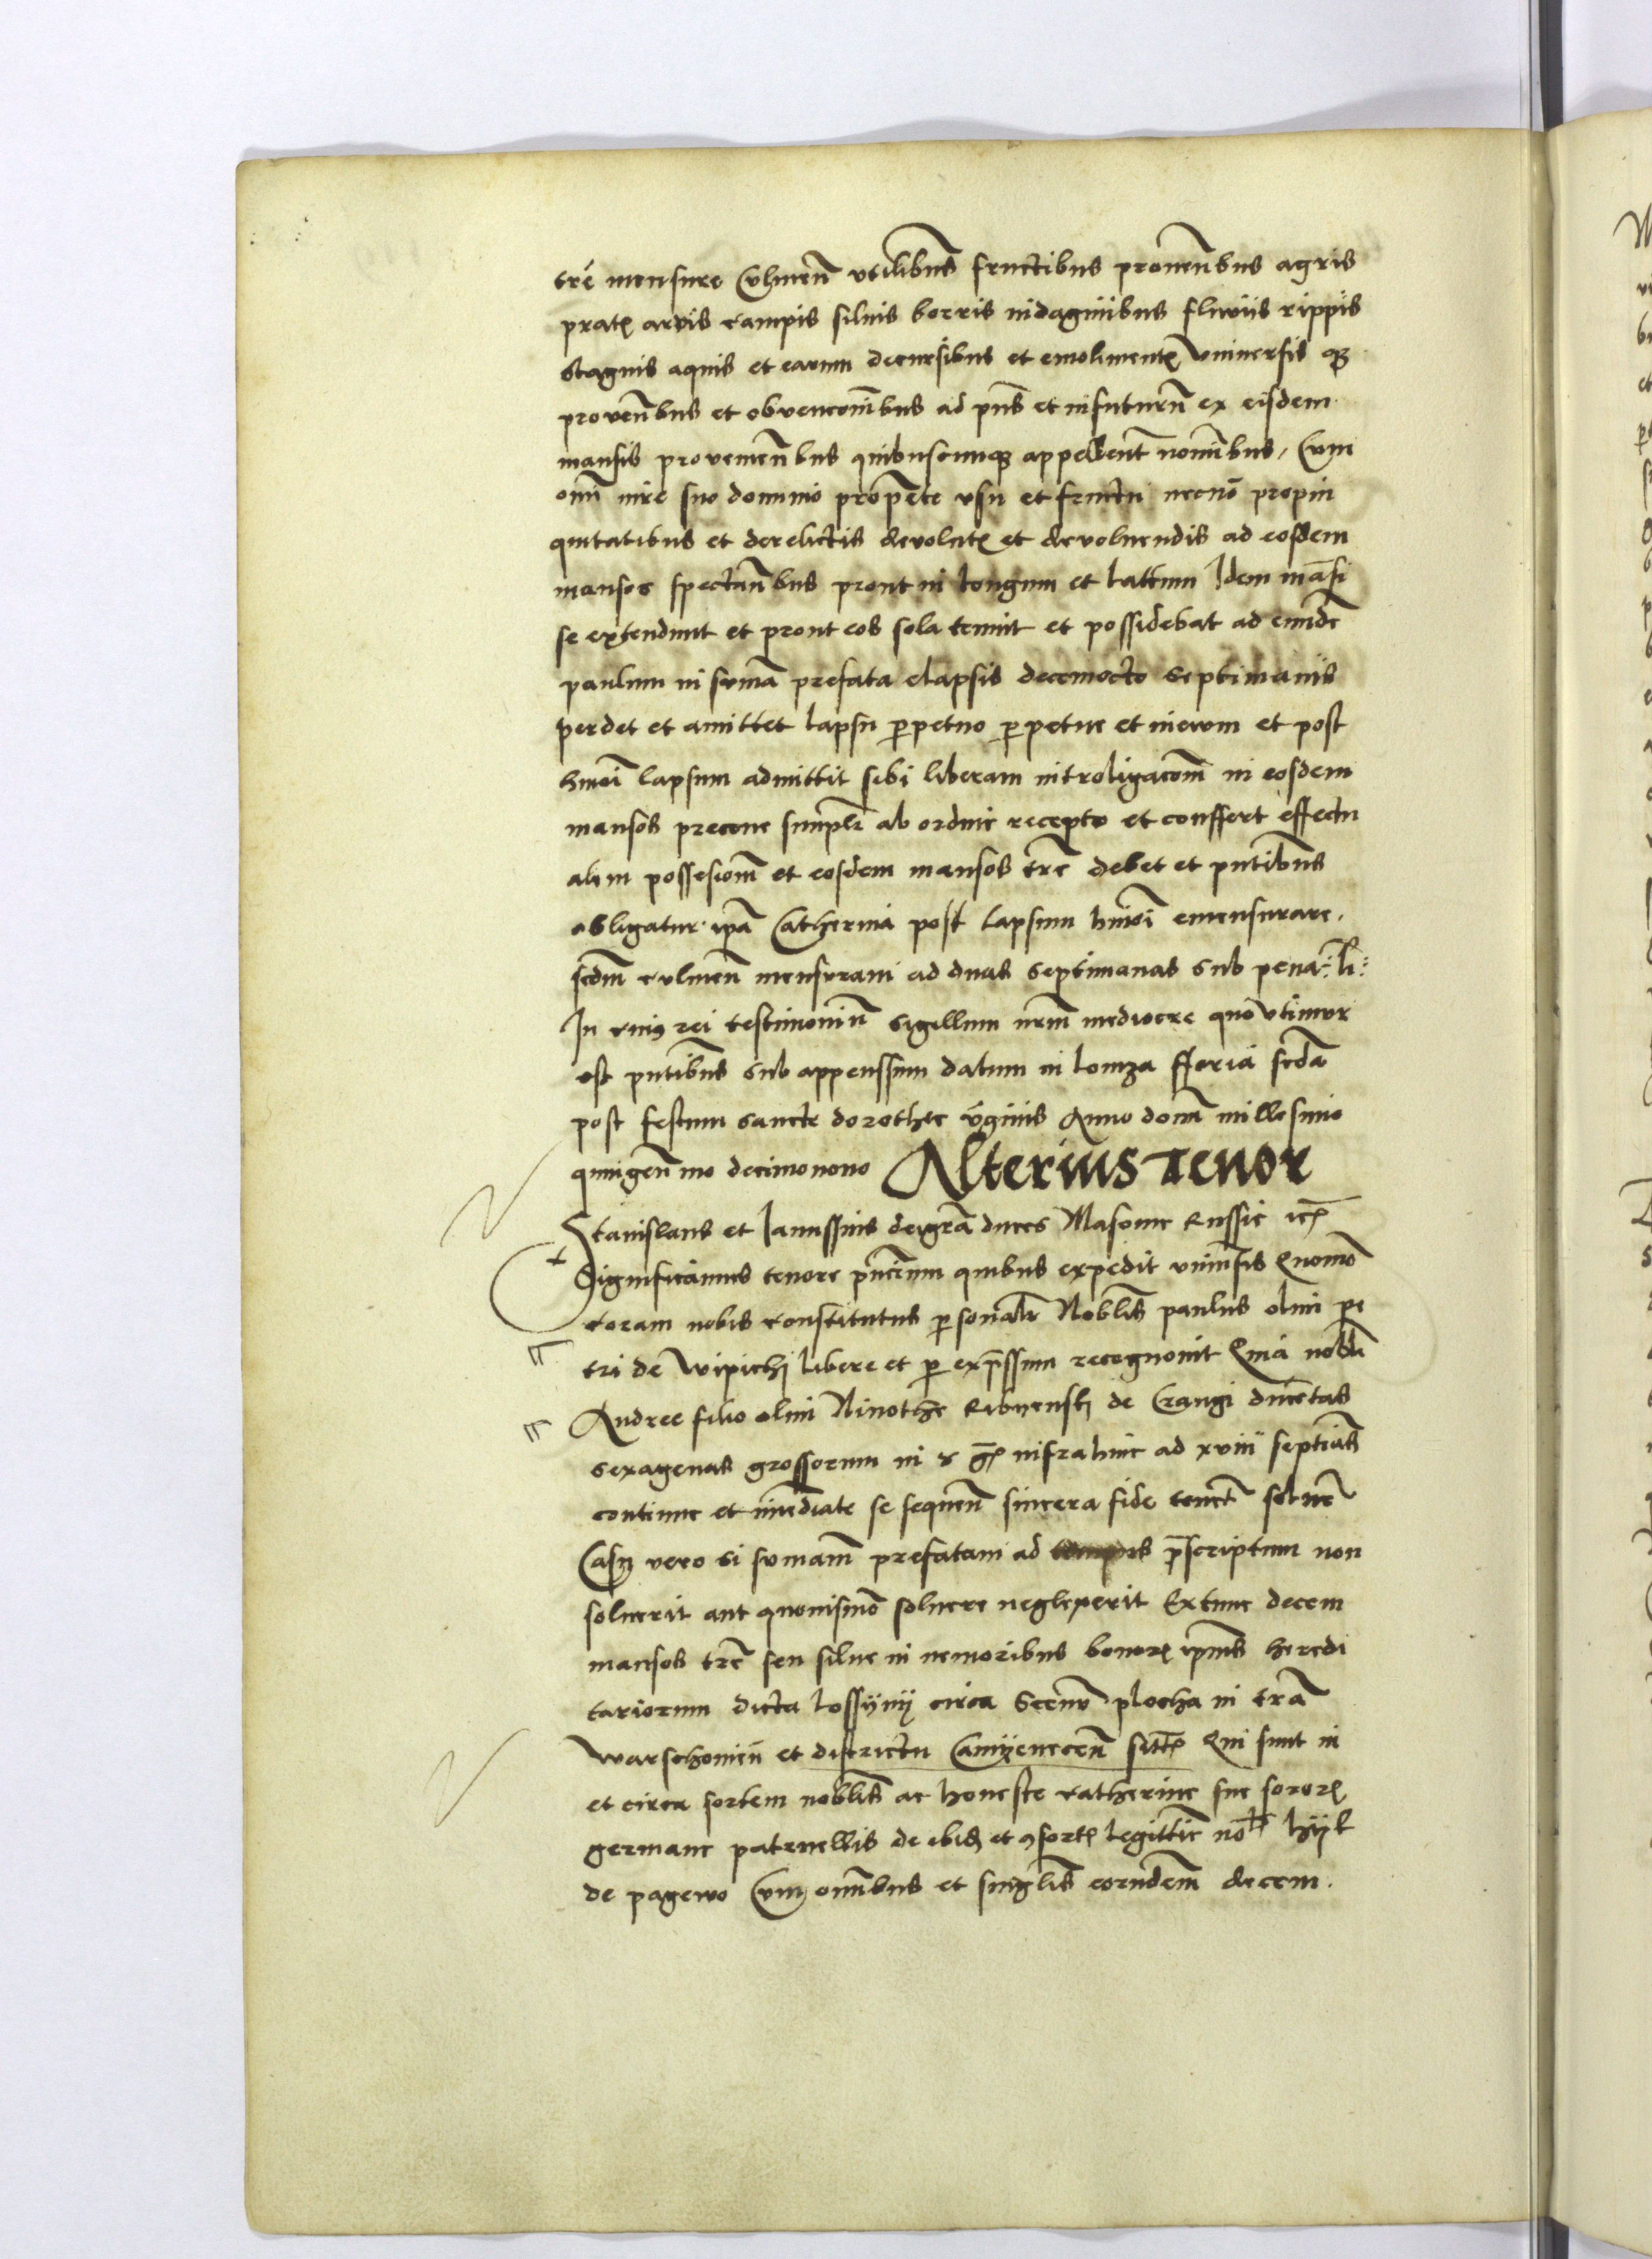 trē mensure Culmen̄ vtilibus fructibus prouen̄bus agris
pratꝭ aruis campis siluis borris indaginibus fluuiis rippis
stagnis aquis et earum decursibus et emolimentꝭ vniuersis qꝫ
proven̄bus et obvencoībus ad pn̄s et in futurū ex eisdem
mansis provemen̄bus quibuscumqꝫ appellent̄ noībus, Cum
om̄i iure suo dominio propete vsu et fructu necnō propin
quitatibus et derelictis devolutꝭ et devoluendis ad eosdem
mansos spectan̄bus prout in longum et lattum Idem māsi
se extendunt et prout eos sola tenuit et possidebat ad eundē
paulum in sūma prefata elapsis decemocto septimanis
perdet et amittet lapsu ꝑpetuo ꝑpetue et in ewm et post
hmōi lapsum admittit sibi liberam introligacoēm in eosdem
mansos precone simplr̄ ab ordine recepto et conffert effectu
alem possesioēm et eosdem mansos trē debet et pn̄tibus
obligatur ip̄a Catherina post lapsum hmōi emensurare
scdm̄ culmen̄ mensuram ad duas septimanas sub pena ·L·
In cuiꝰ rei testimoniū Sigellum nr̄m mediocre quo vtimur
est pn̄tibus sub appenssum datum in lomza fferia scd̄a
post festum sancte dorothee v̄ginis Anno dom̄ millesimo
quingen̄mo decimonono Alterius Tenor
Stanislaus et Ianussius dei gr̄a duces Masouie Russie rcꝭ
Significamus tenore pn̄cium quibus expedit vniūsis Quomō
coram nobis constitutus ꝑsonalr̄ Noblis paulus olim pe
tri de Wipichi libere et ꝑ exp̄ssum recognouit Quia nobli
Andree filio olim Ninothē Ribyensky de Crangi ducētas
sexagenas grossorum in infra hinc ad xviii septiās
continue et imediate se sequen̄ sincera fide tenet̄ soluē
Casu vero si sumam̄ prefatam ad tempus p̄scriptum non
soluerit aut quouismō soluere neglexerit Extunc decem
mansos trē seu silue in nemoribus bonorꝭ ip̄ius heredi
tariorum dicta lossyny circa plocha in trā
Warschouien̄ et districtu Camyenecen̄ sittꝭ Qui sunt in
et circa sortem noblis ac honeste Catherine sue sororꝭ
germane patruellis de ibid et ꝯsortꝭ legittiē nob hyl
de pagewo Cum om̄ibus et singlis eorundem decem